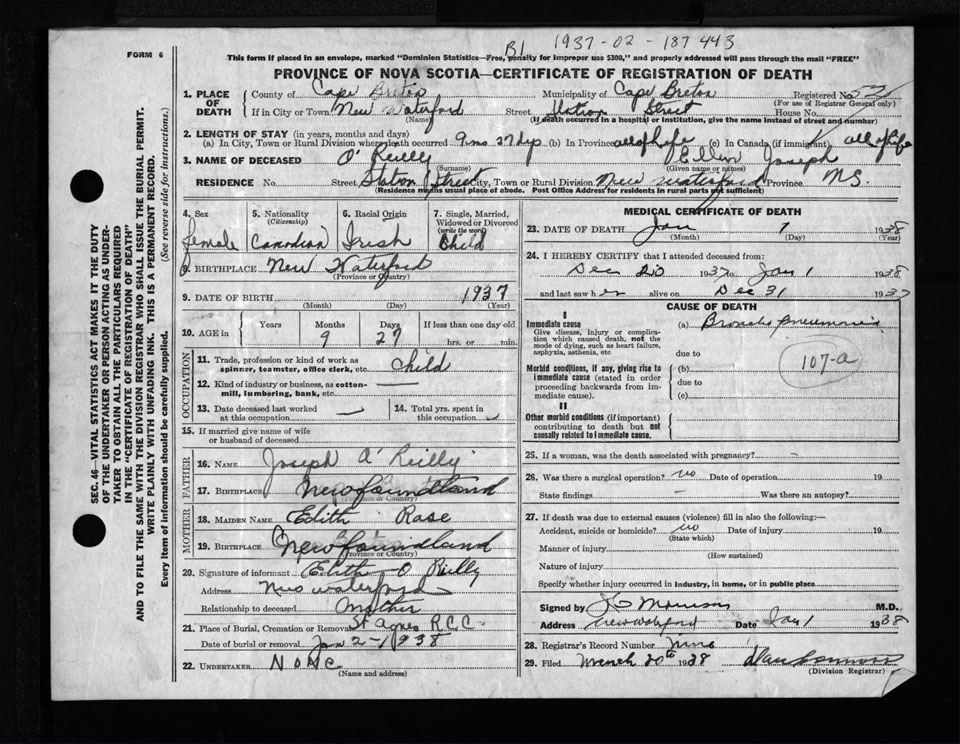 B1 1937-02-187443
FORM 6
This form if placed in an envelope, marked "Dominion Statistics—Free, penalty for improper use $300," and properly addressed will pass through the mail "FREE"
PROVINCE OF NOVA SCOTIA—CERTIFICATE OF REGISTRATION OF DEATH
SEC. 46—VITAL STATISTICS ACT MAKES IT THE DUTY
OF THE UNDERTAKER OR PERSON ACTING AS UNDER-
TAKER TO OBTAIN ALL THE PARTICULARS REQUIRED
IN THE "CERTIFICATE OF REGISTRATION OF DEATH"
AND TO FILE THE SAME WITH THE DIVISION REGISTRAR WHO SHALL ISSUE THE BURIAL PERMIT.
WRITE PLAINLY WITH UNFADING INK. THIS IS A PERMANENT RECORD.
Every item of information should be carefully supplied. (See reverse side for instructions.)
1. PLACE OF DEATH County of Cape Breton Municipality of Cape Breton Registered No.
(For use of Registrar General only)
If in City or Town New Waterford Street Station Street House No.
(Name) (If death occurred in a hospital or institution, give the name instead of street and number)
2. LENGTH OF STAY (in years, months and days)
(a) In City, Town or Rural Division where death occurred 9 mo 27 dys (b) In Province all of life (c) In Canada (if immigrant) all of life
3. NAME OF DECEASED O'Reilly Joseph
(Surname) (Given name or names)
RESIDENCE No. Street Station Street City, Town or Rural Division New Waterford Province N.S
(Residence means usual place of abode. Post Office Address for residents in rural parts not sufficient)
4. Sex female
5. Nationality (Citizenship) Canadian
6. Racial Origin Irish
7. Single, Married, Widowed or Divorced (write the word) Child
8. BIRTHPLACE New Waterford
(Province or Country)
9. DATE OF BIRTH 1937
(Month) (Day) (Year)
10. AGE in Years Months Days If less than one day old
9 27 hrs. or min.
OCCUPATION
11. Trade, profession or kind of work as spinner, teamster, office clerk, etc. Child
12. Kind of industry or business, as cotton-mill, lumbering, bank, etc. —
13. Date deceased last worked at this occupation —
14. Total yrs. spent in this occupation
15. If married give name of wife or husband of deceased
FATHER
16. NAME Joseph O'Reilly
17. BIRTHPLACE Newfoundland
(Province or Country)
MOTHER
18. MAIDEN NAME Edith Rose
19. BIRTHPLACE Newfoundland
(Province or Country)
20. Signature of informant Edith O Reilly
Address New Waterford
Relationship to deceased Mother
21. Place of Burial, Cremation or Removal St Agnes R.C.C.
Date of burial or removal Jan 2-1938
22. UNDERTAKER None
(Name and address)
MEDICAL CERTIFICATE OF DEATH
23. DATE OF DEATH Jan 1 1938
(Month) (Day) (Year)
24. I HEREBY CERTIFY that I attended deceased from:
Dec 20 1937 to Jan 1 1938
and last saw her alive on Dec 31 1937
CAUSE OF DEATH
I
Immediate cause
Give disease, injury or complication which caused death, not the mode of dying, such as heart failure, asphyxia, asthenia, etc
(a) Broncho pneumonia
due to
107-a
Morbid conditions, if any, giving rise to immediate cause (stated in order proceeding backwards from immediate cause).
(b)
due to
(c)
II
Other morbid conditions (if important) contributing to death but not causally related to immediate cause.
25. If a woman, was the death associated with pregnancy? —
26. Was there a surgical operation? no Date of operation 19
State findings — Was there an autopsy?
27. If death was due to external causes (violence) fill in also the following:—
Accident, suicide or homicide? no Date of injury 19
(State which)
Manner of injury
(How sustained)
Nature of injury
Specify whether injury occurred in industry, in home, or in public place
Signed by Morrison M.D.
Address New Waterford Date Jan 1 1938
28. Registrar's Record Number
29. Filed March 20th 1938
(Division Registrar)